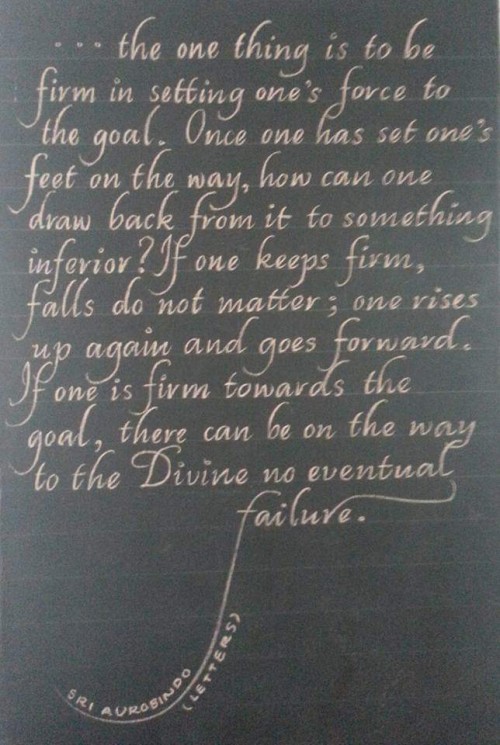 ... the one thing is to be
firm in setting one's force to
the goal. Once one has set one's
feet on the way, how can one
draw back from it to something
inferior? If one keeps firm,
falls do not matter; one rises
up again and goes forward.
If one is firm towards the
goal, there can be on the way
to the Divine no eventual
failure.
SRI AUROBINDO
(LETTERS)